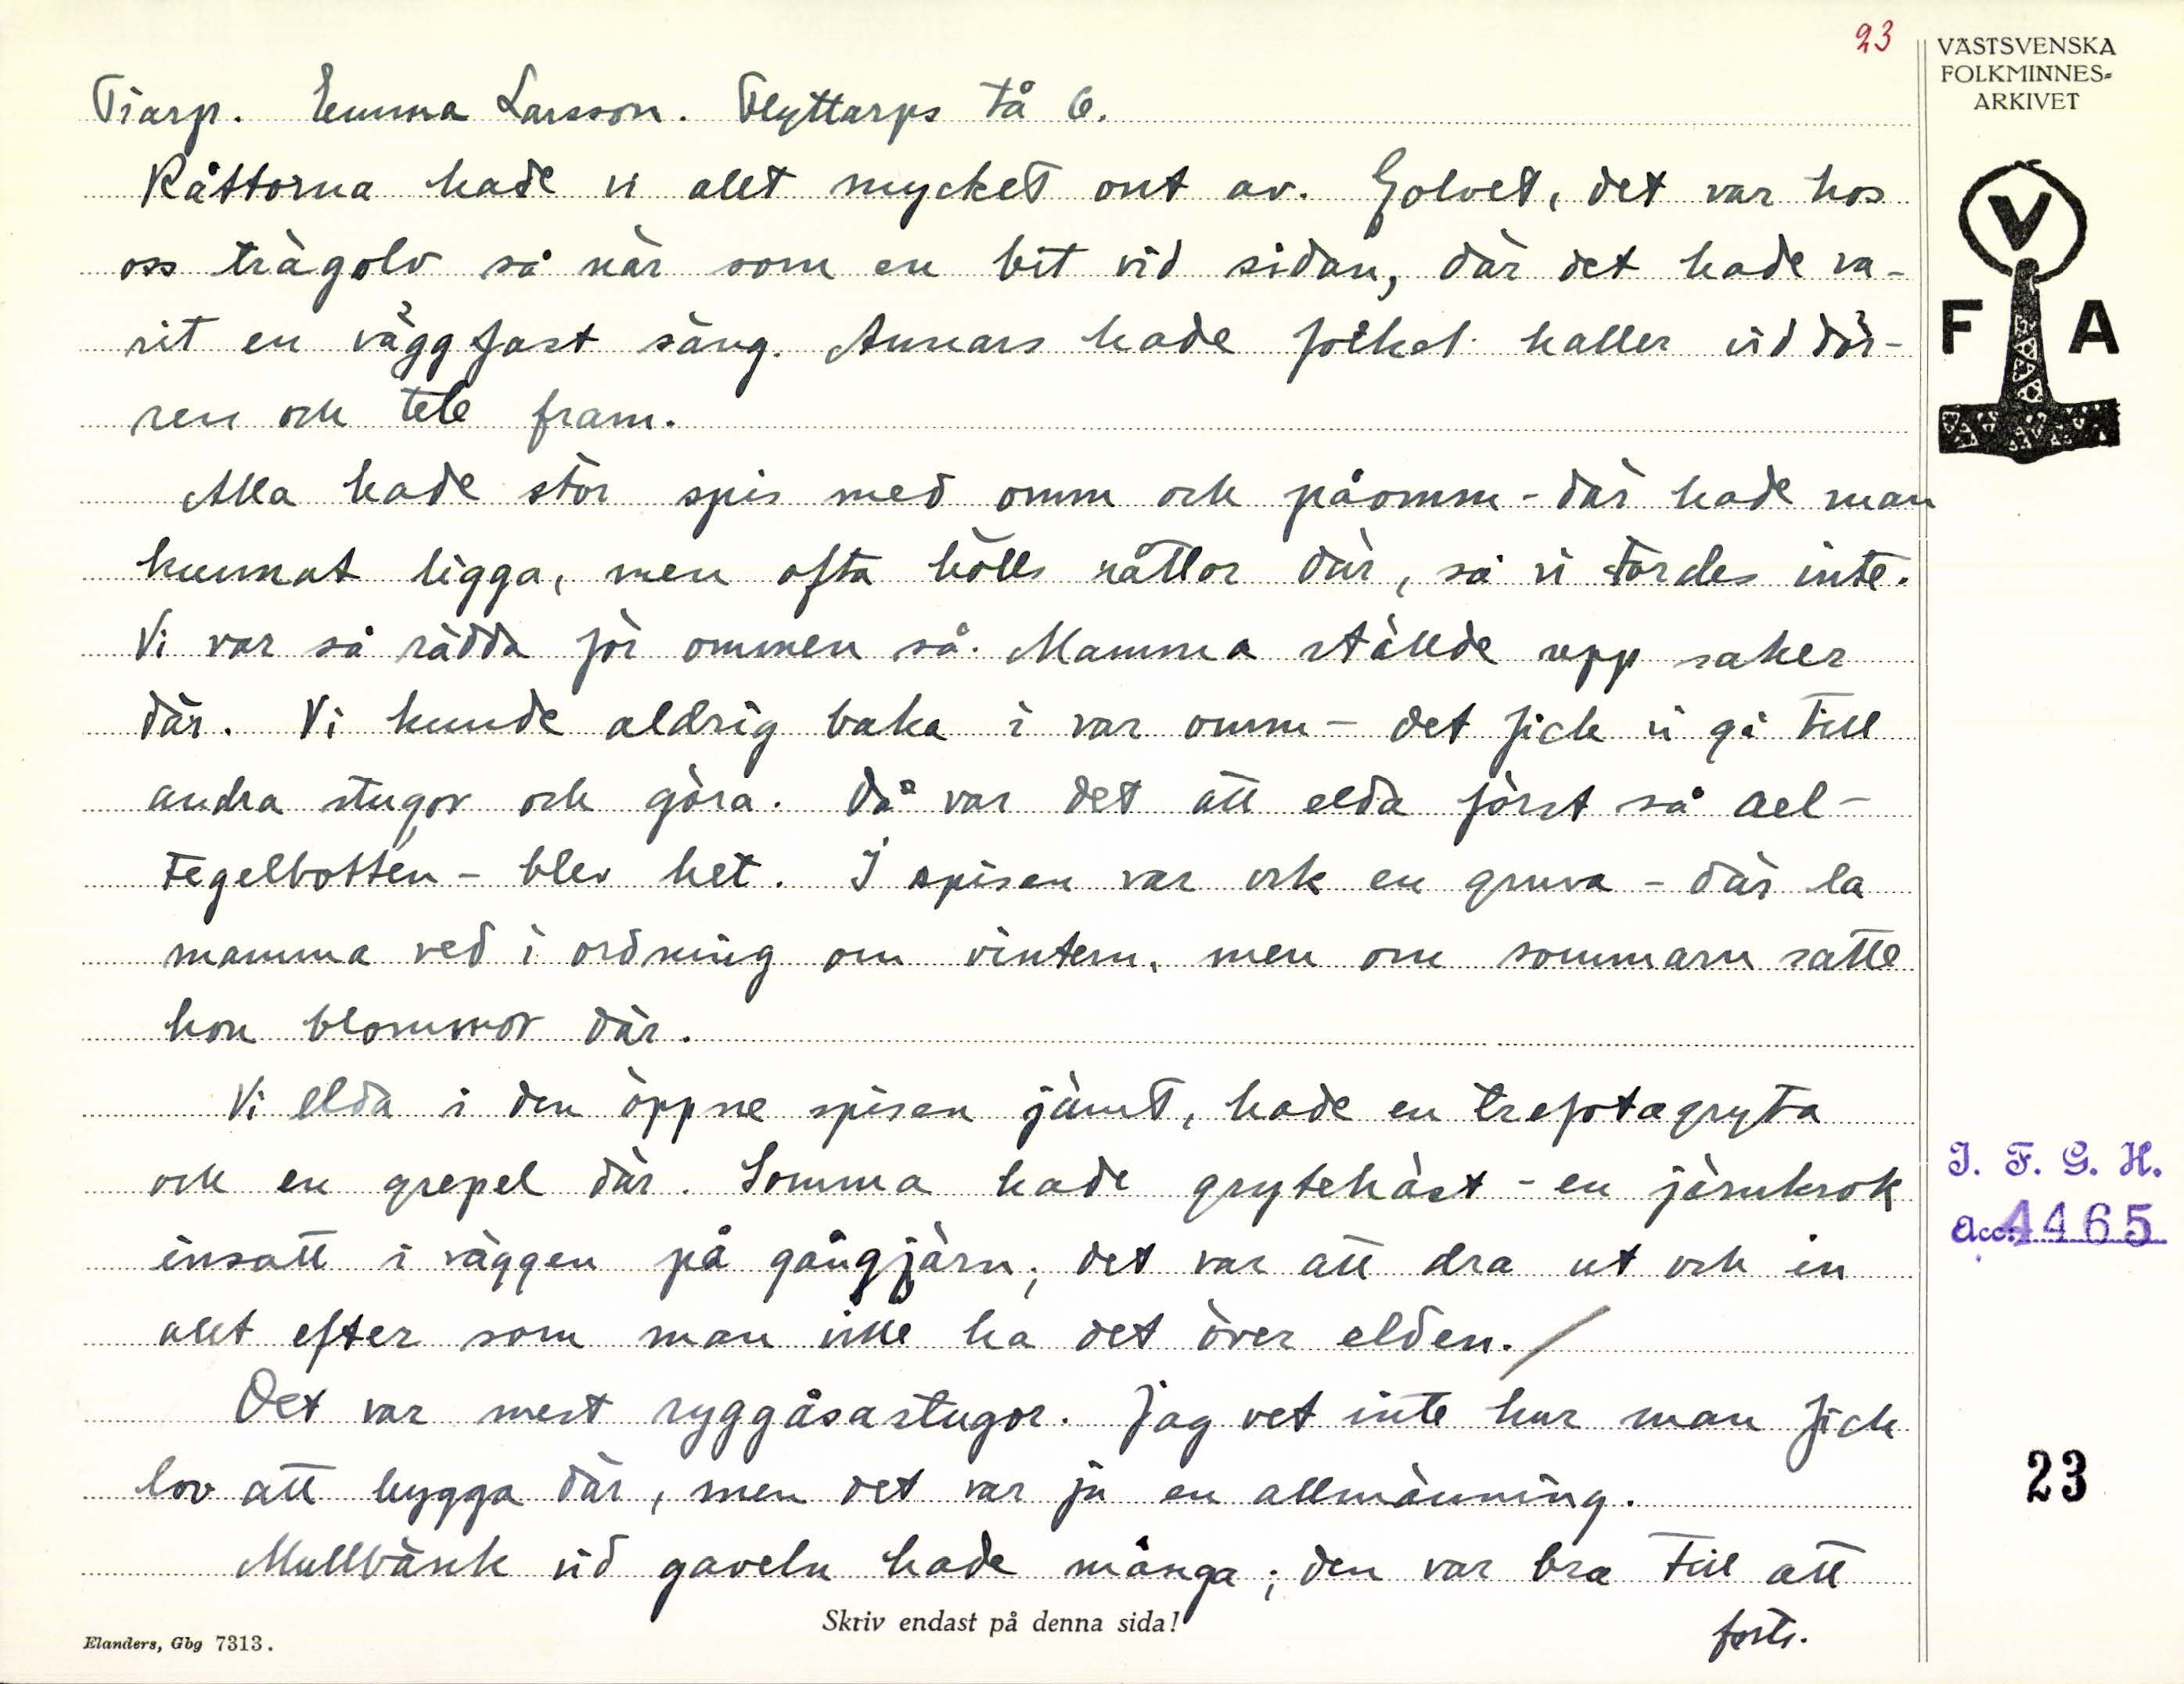 23
VÄSTSVENSKA
FOLKMINNES-
ARKIVET
Tiarp. Emma Larsson. Flyttarps tå 6.
Råttorna hade vi allt mycket ont av. Golvet, det var hos
oss trägolv så när som en bit vid sidan, där det hade va-
rit en väggfast säng. Annars hade folket haller vid dör-
ren och tele fram.
Alla hade stor spis med omm och påomm - där hade man
kunnat ligga, men ofta hölls råttor där, så vi tördes inte.
Vi var så rädda för ommen så. Mamma ställde upp saker
där. Vi kunde aldrig baka i var omm - det fick vi gå till
andra stugor och göra. Då var det att elda först så ael -
tegelbotten - blev het. I spisen var ock en gruva - där la
mamma ved i ordning om vintern, men om sommarn satte
hon blommor där.
Vi elda i den öppne spisen jämt, hade en trefotagryta
och en grepel där. Somma hade grytehäst - en järnkrok
insatt i väggen på gångjärn; det var att dra ut och in
allt efter som man ville ha det över elden./
Det var mest ryggåsastugor. Jag vet inte hur man fick
lov att bygga där, men det var ju en allmänning.
Mullbänk vid gaveln hade många; den var bra till att
forts.
Skriv endast på denna sida!
Elanders, Gbg 7313.
V
F A
I. F. G. H.
Acc. 4465
23